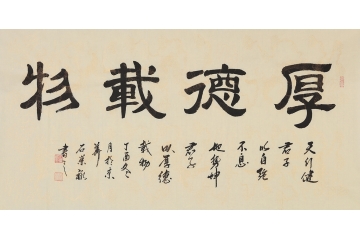 厚德載物
天行健
君子
以自強
不息
地勢坤
君子
以厚德
載物
丁酉冬
月於京
華
石榮祿
書之